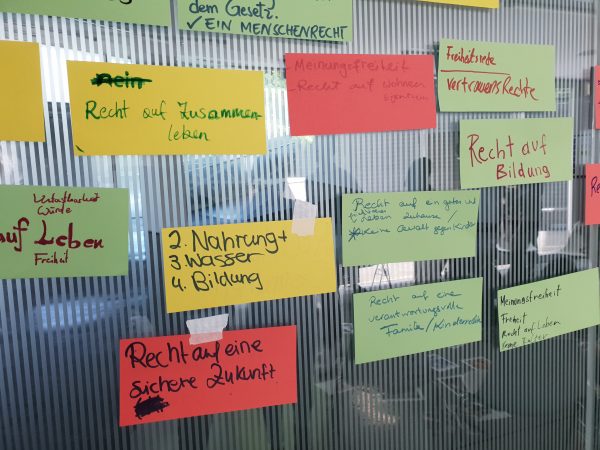 dem Gesetz.
✓ EIN MENSCHENRECHT
nein
Recht auf Zusammen
leben
- Meinungsfreiheit
- Recht auf wohnen
eigentum
Freiheitsrechte
Vertrauens Rechte
Recht auf
Bildung
Re
Unantastbarkeit
Würde
auf Leben
Freiheit
2. Nahrung+
3 Wasser
4. Bildung
Recht auf ein gutes und
Leben Zuhause /
keine Gewalt gegen Kinder
Recht auf eine
verantwortungsvolle
Familie/Kinderrechte
Meinungsfreiheit
Freiheit
Recht auf Leben
Recht auf eine
sichere Zukunft